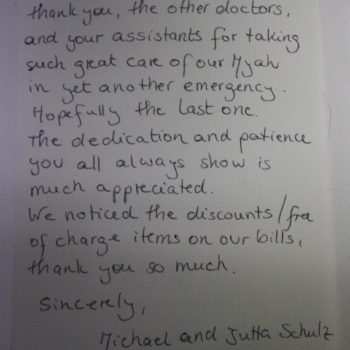 thank you, the other doctors,
and your assistants for taking
such great care of our Myah
in yet another emergency.
Hopefully the last one.
The dedication and patience
you all always show is
much appreciated.
We noticed the discounts/free
of charge items on our bills,
thank you so much.
Sincerely,
Michael and Jutta Schulz